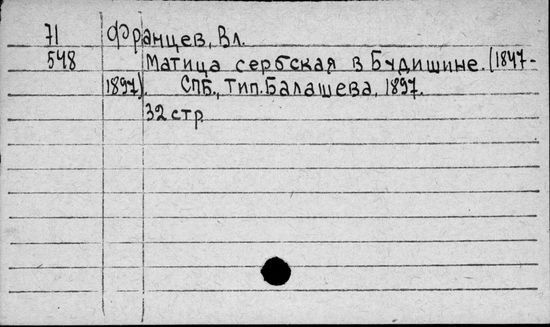 71 Францев, Вл.
548 Матица сербская в Будишине. (1847-
1897). СПБ., Тип. Балашева, 1897.
32 стр.